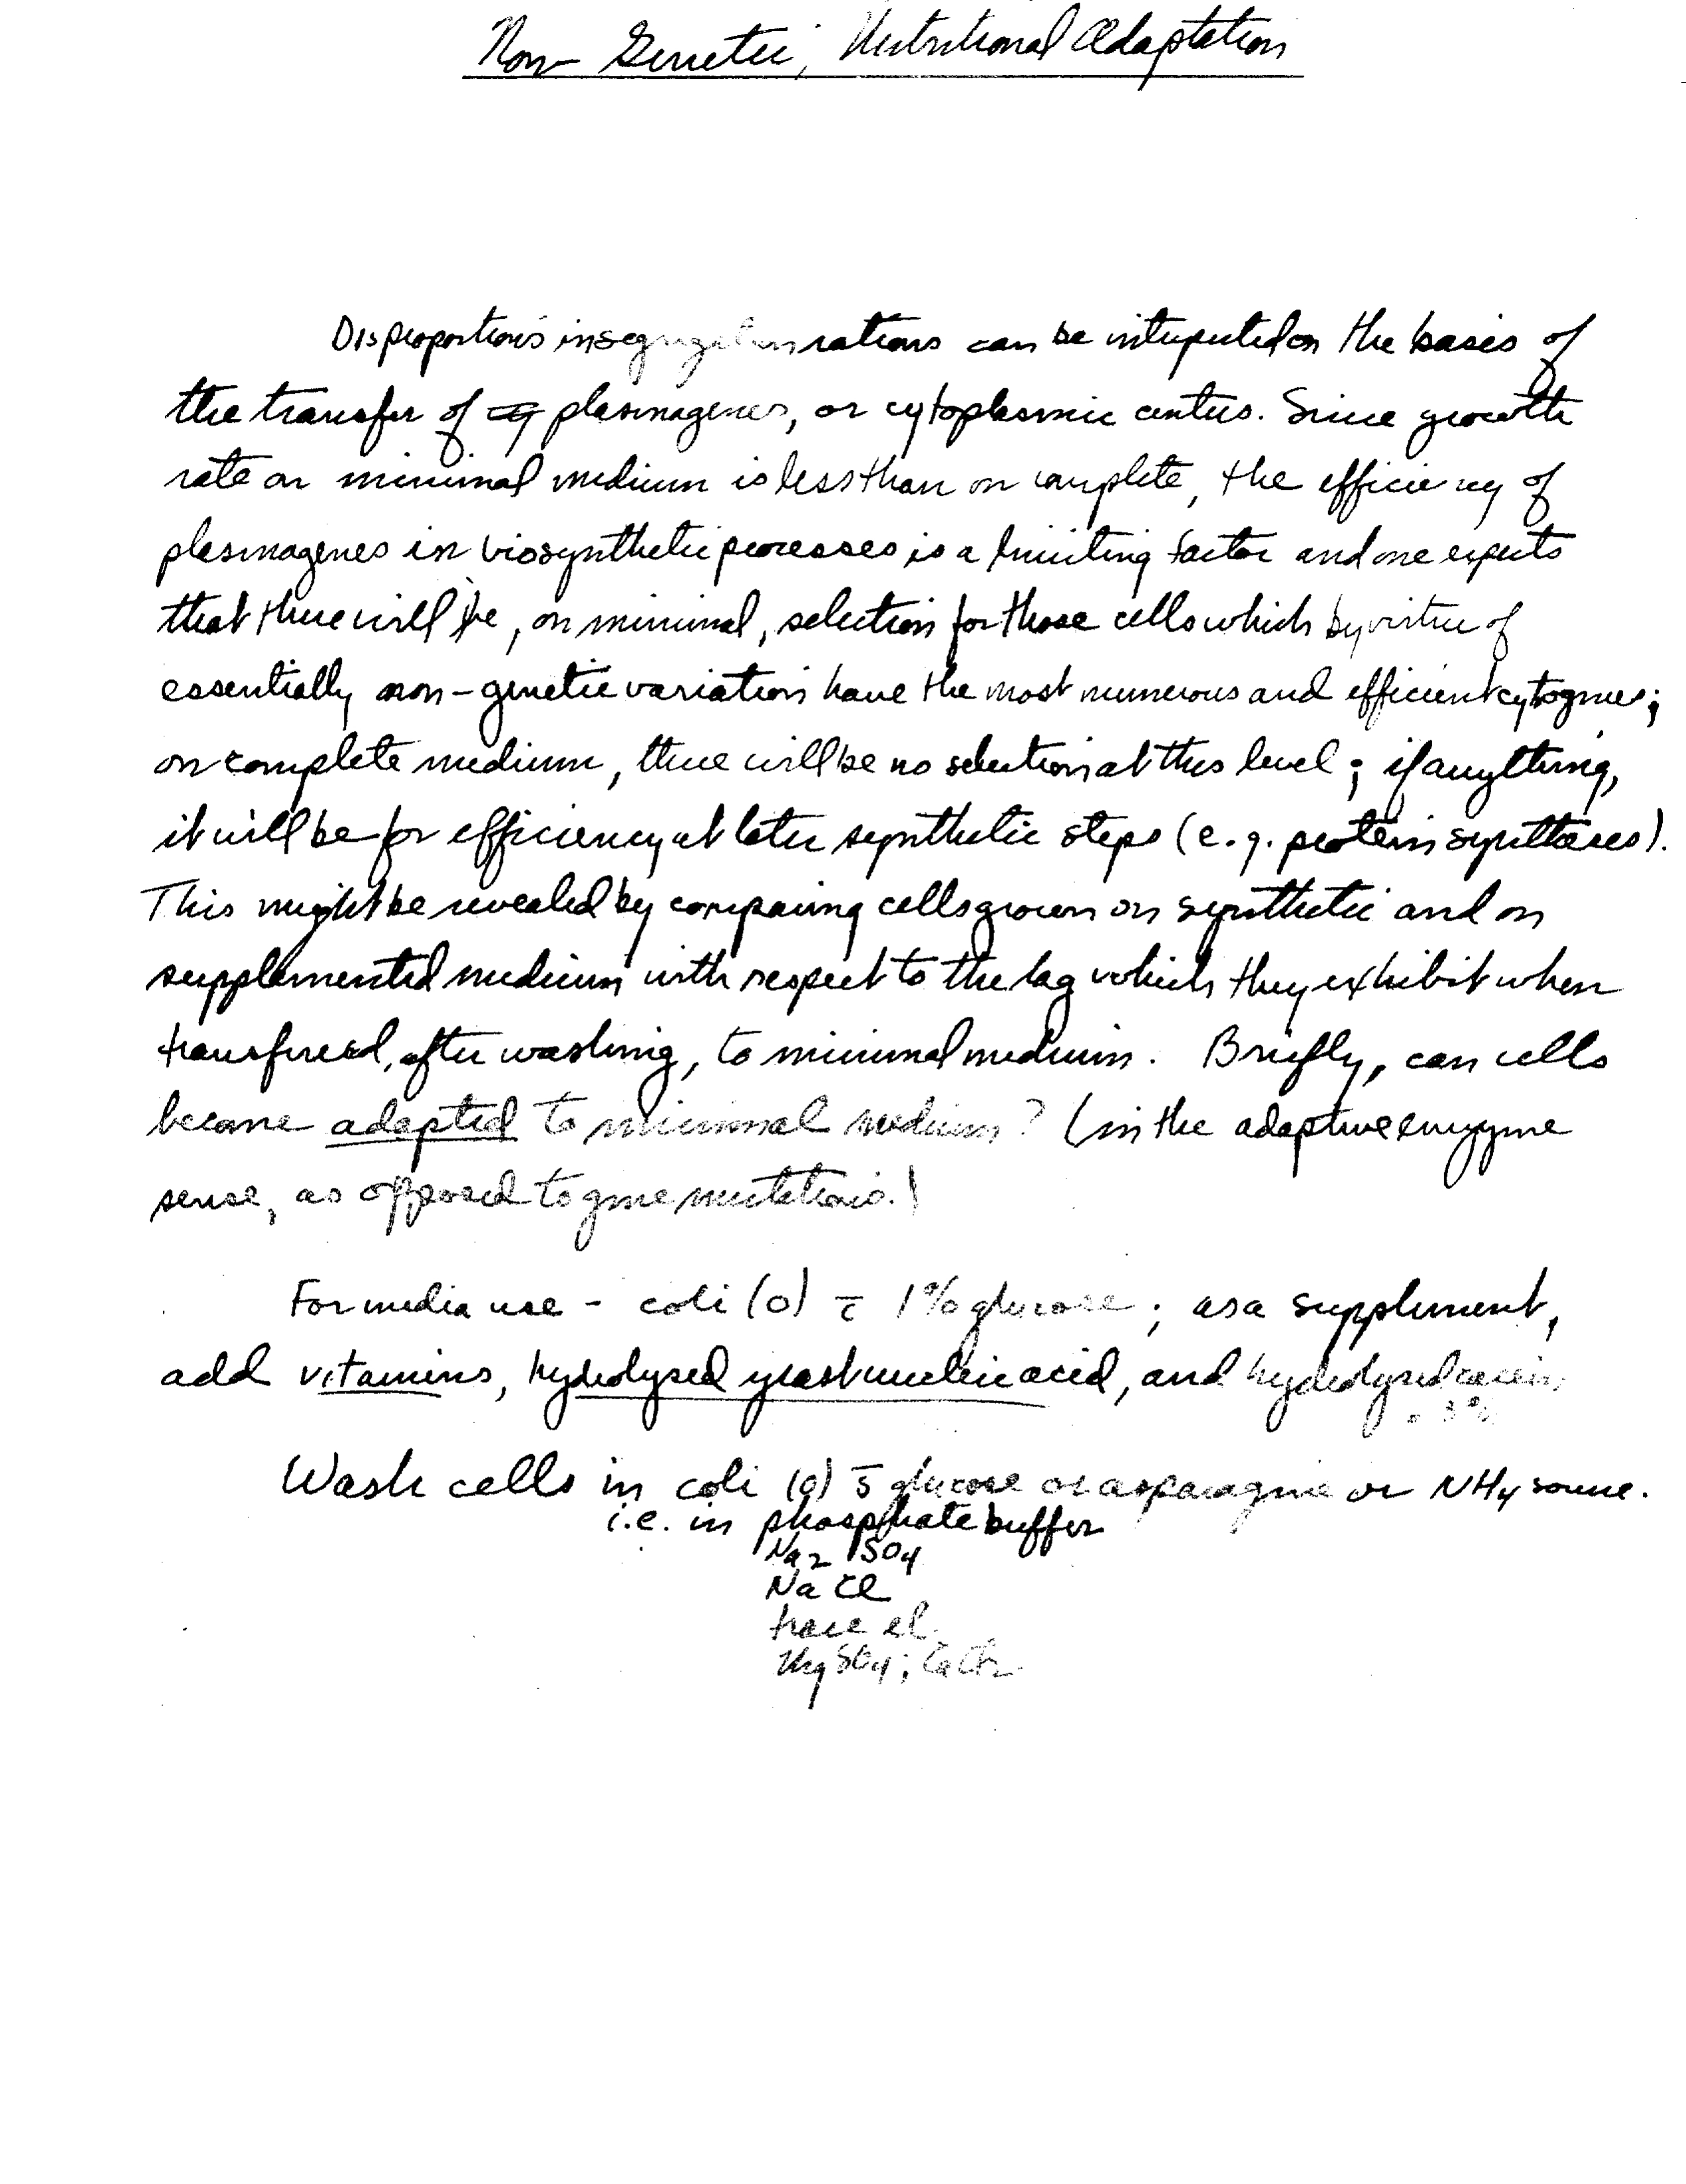 Non Genetic, Nutritional Adaptation
Disproportions in segregation ratios can be interpreted on the basis of
the transfer of plasmagenes, or cytoplasmic centers. Since growth
rate on minimal medium is less than on complete, the efficiency of
plasmagenes in biosynthetic processes is a limiting factor and one expects
that there will be, on minimal, selection for those cells which by virtue of
essentially non-genetic variation have the most numerous and efficient cytogenes;
on complete medium, there will be no selection at this level; if anything,
it will be for efficiency at later synthetic steps (e.g. protein syntheses).
This might be revealed by comparing cells grown on synthetic and on
supplemented medium with respect to the lag which they exhibit when
transfered, after washing, to minimal medium. Briefly, can cells
become adapted to minimal medium? (in the adaptive enzyme
sense, as opposed to gene mutations.)
For media use - coli (0) c̄ 1% glucose; as a supplement,
add vitamins, hydrolysed yeast nucleic acid, and hydrolysed casein
Wash cells in coli (0) s̄ glucose or asparagine or NH4 source.
i.e. in phosphate buffer
Na2 SO4
NaCl
trace el.
MgSO4; CaCl2